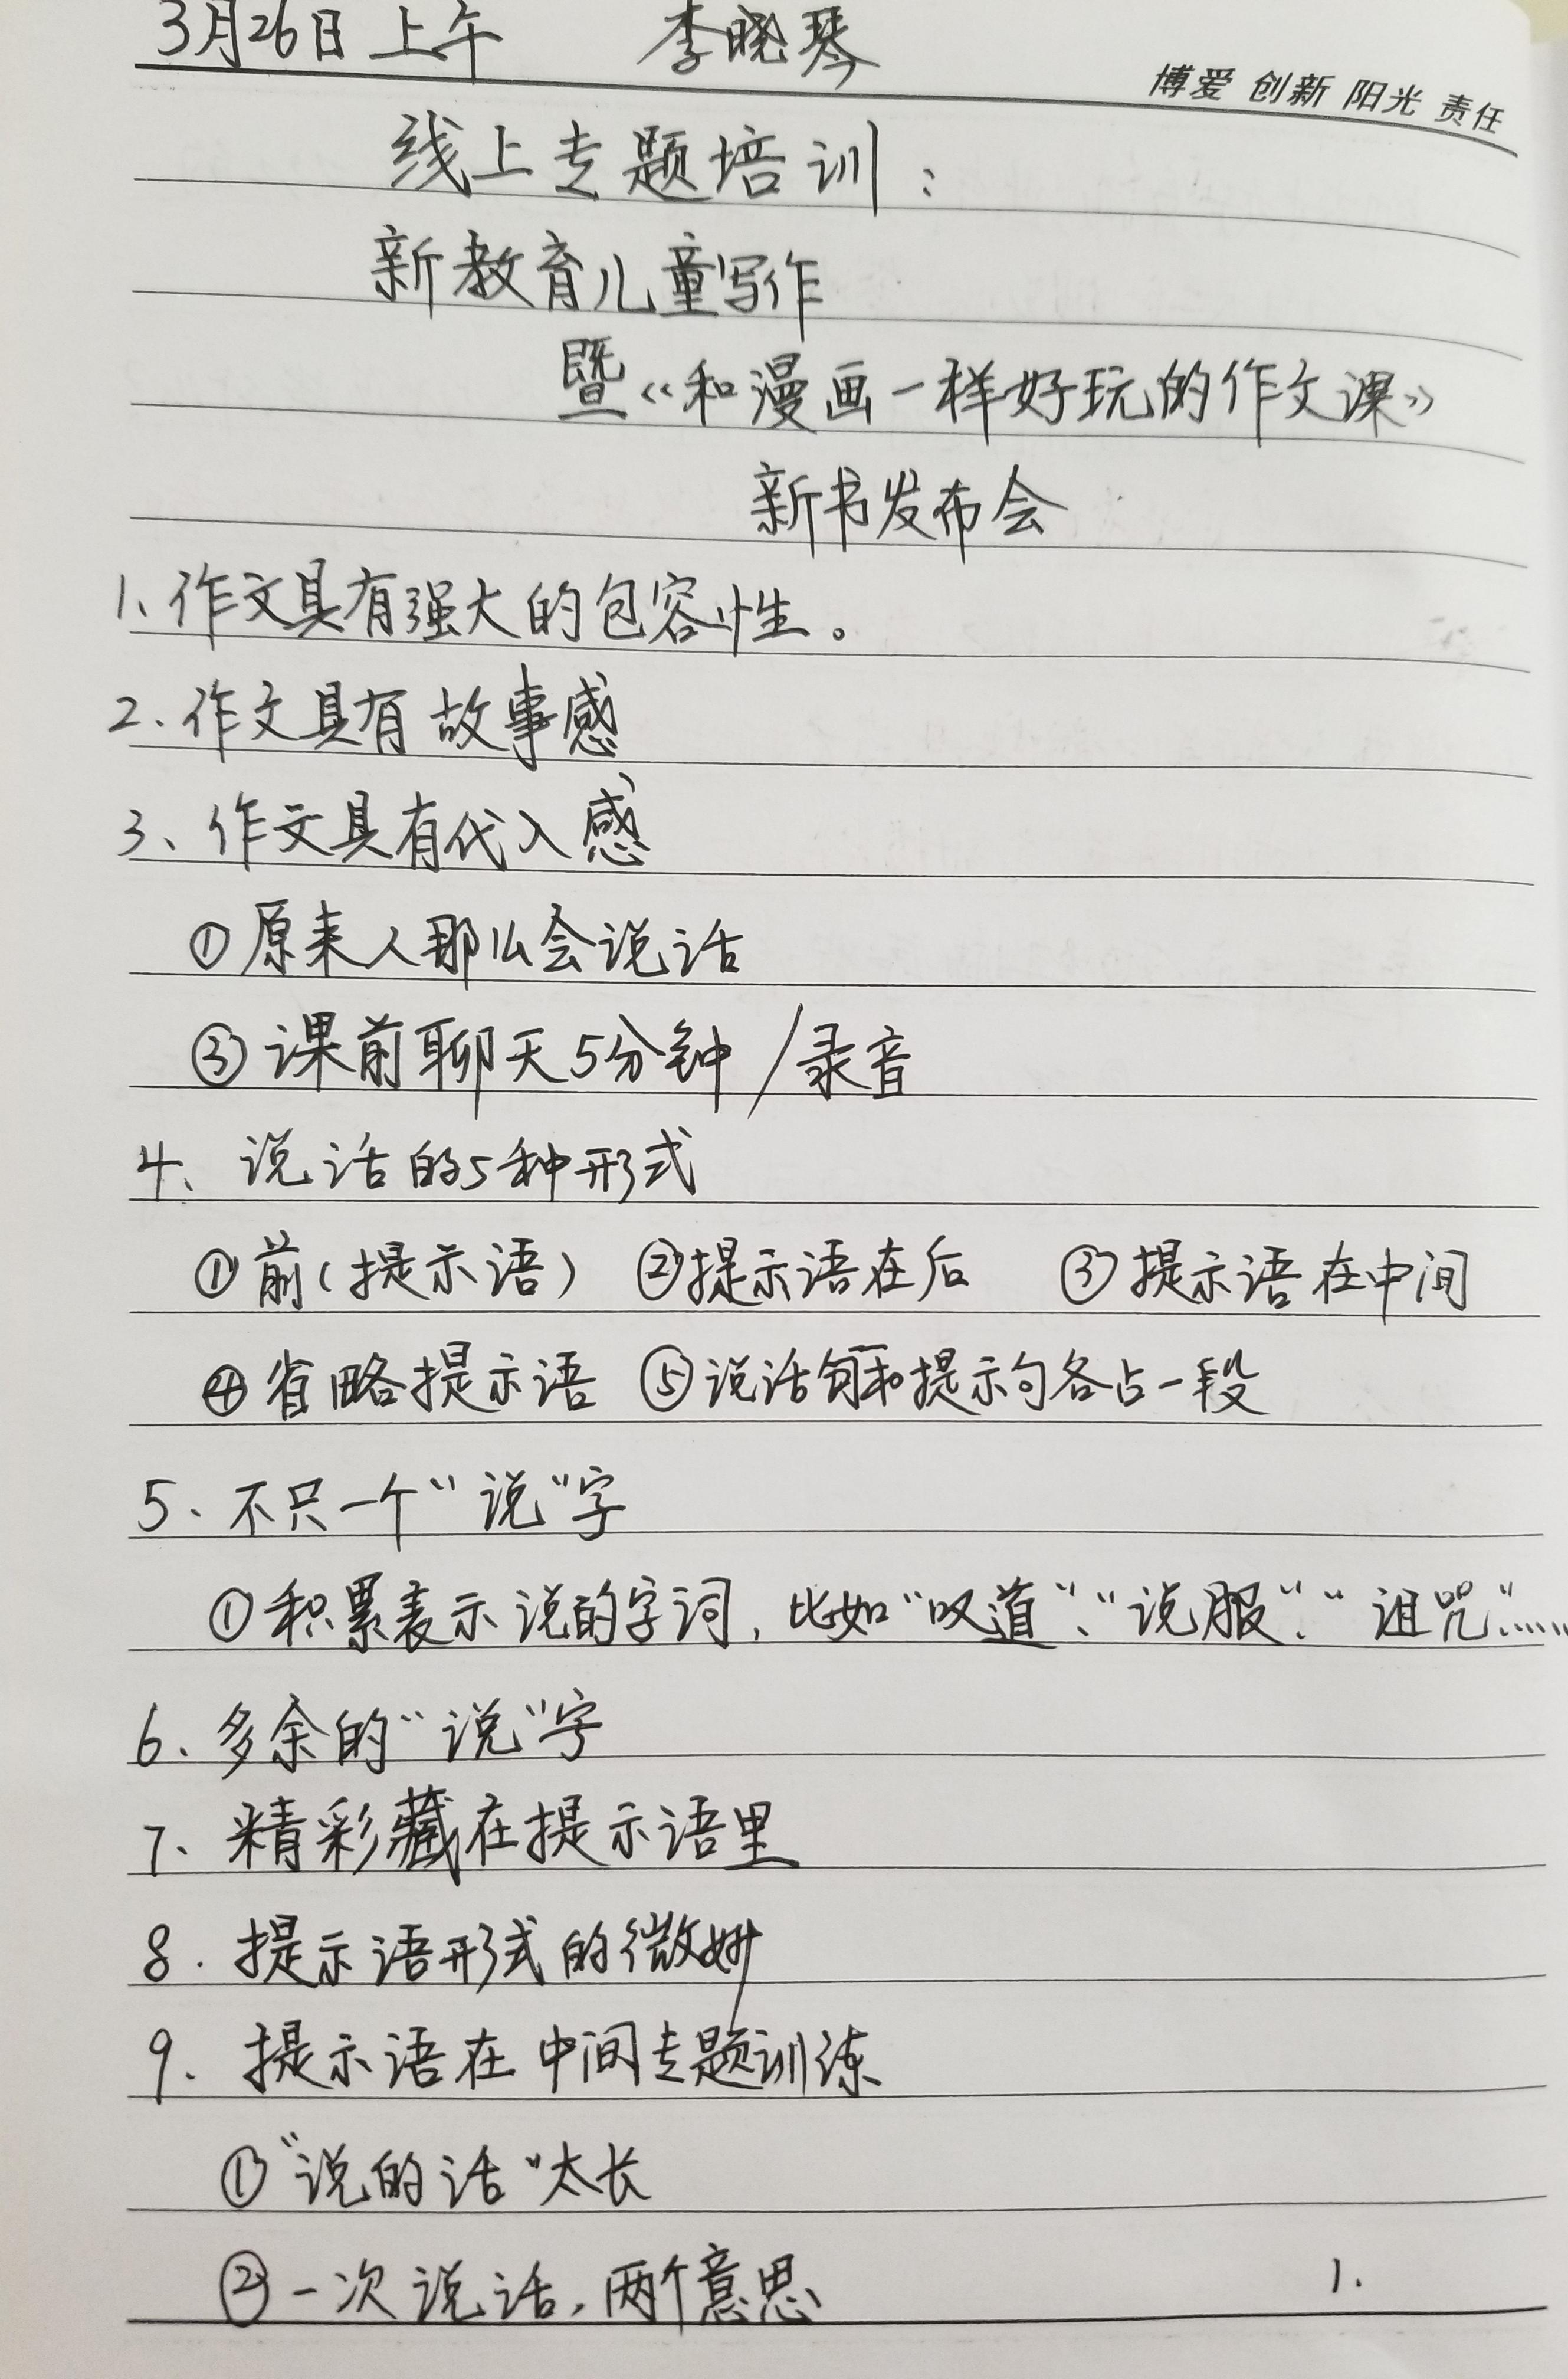 3月26日上午 李晓琴
博爱 创新 阳光 责任
线上专题培训：
新教育儿童写作
暨《和漫画一样好玩的作文课》
新书发布会
1、作文具有强大的包容性。
2、作文具有故事感
3、作文具有代入感
①原来人那么会说话
③课前聊天5分钟/录音
4、说话的5种形式
①前(提示语) ②提示语在后 ③提示语在中间
④省略提示语 ⑤说话句和提示句各占一段
5、不只一个“说”字
①积累表示说的字词，比如“叹道”、“说服”、“诅咒”……
6、多余的“说”字
7、精彩藏在提示语里
8.提示语形式的微妙
9.提示语在中间专题训练
①“说的话”太长
②一次说话，两个意思
1.